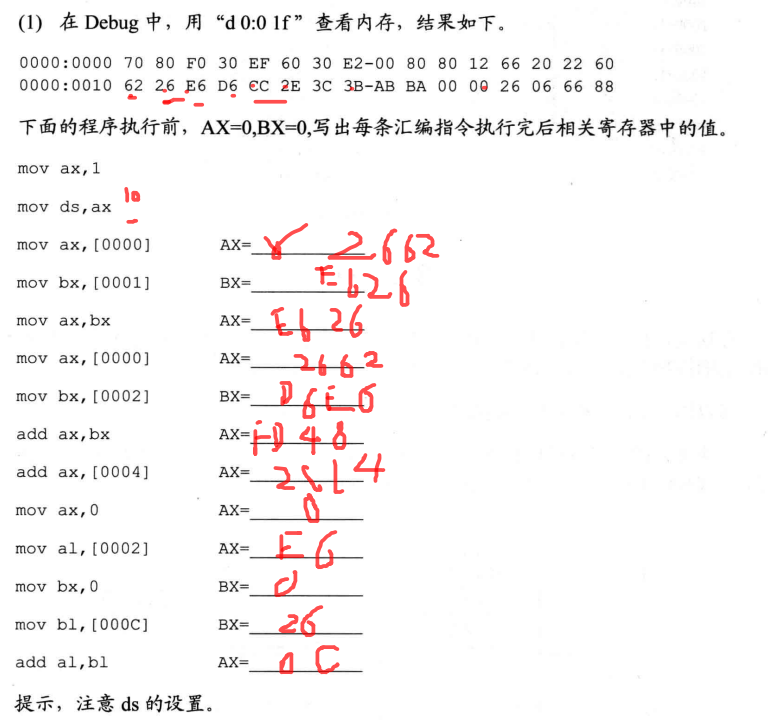 (1) 在 Debug 中，用 “d 0:0 1f” 查看内存，结果如下。
0000:0000 70 80 F0 30 EF 60 30 E2-00 80 80 12 66 20 22 60
0000:0010 62 26 E6 D6 CC 2E 3C 3B-AB BA 00 00 26 06 66 88
下面的程序执行前，AX=0,BX=0,写出每条汇编指令执行完后相关寄存器中的值。
mov ax,1
mov ds,ax 10
mov ax,[0000] AX= 2662
mov bx,[0001] BX= E626
mov ax,bx AX= E626
mov ax,[0000] AX= 2662
mov bx,[0002] BX= D6E6
add ax,bx AX= FD48
add ax,[0004] AX= 2C14
mov ax,0 AX= 0
mov al,[0002] AX= E6
mov bx,0 BX= 0
mov bl,[000C] BX= 26
add al,bl AX= 0C
提示，注意 ds 的设置。